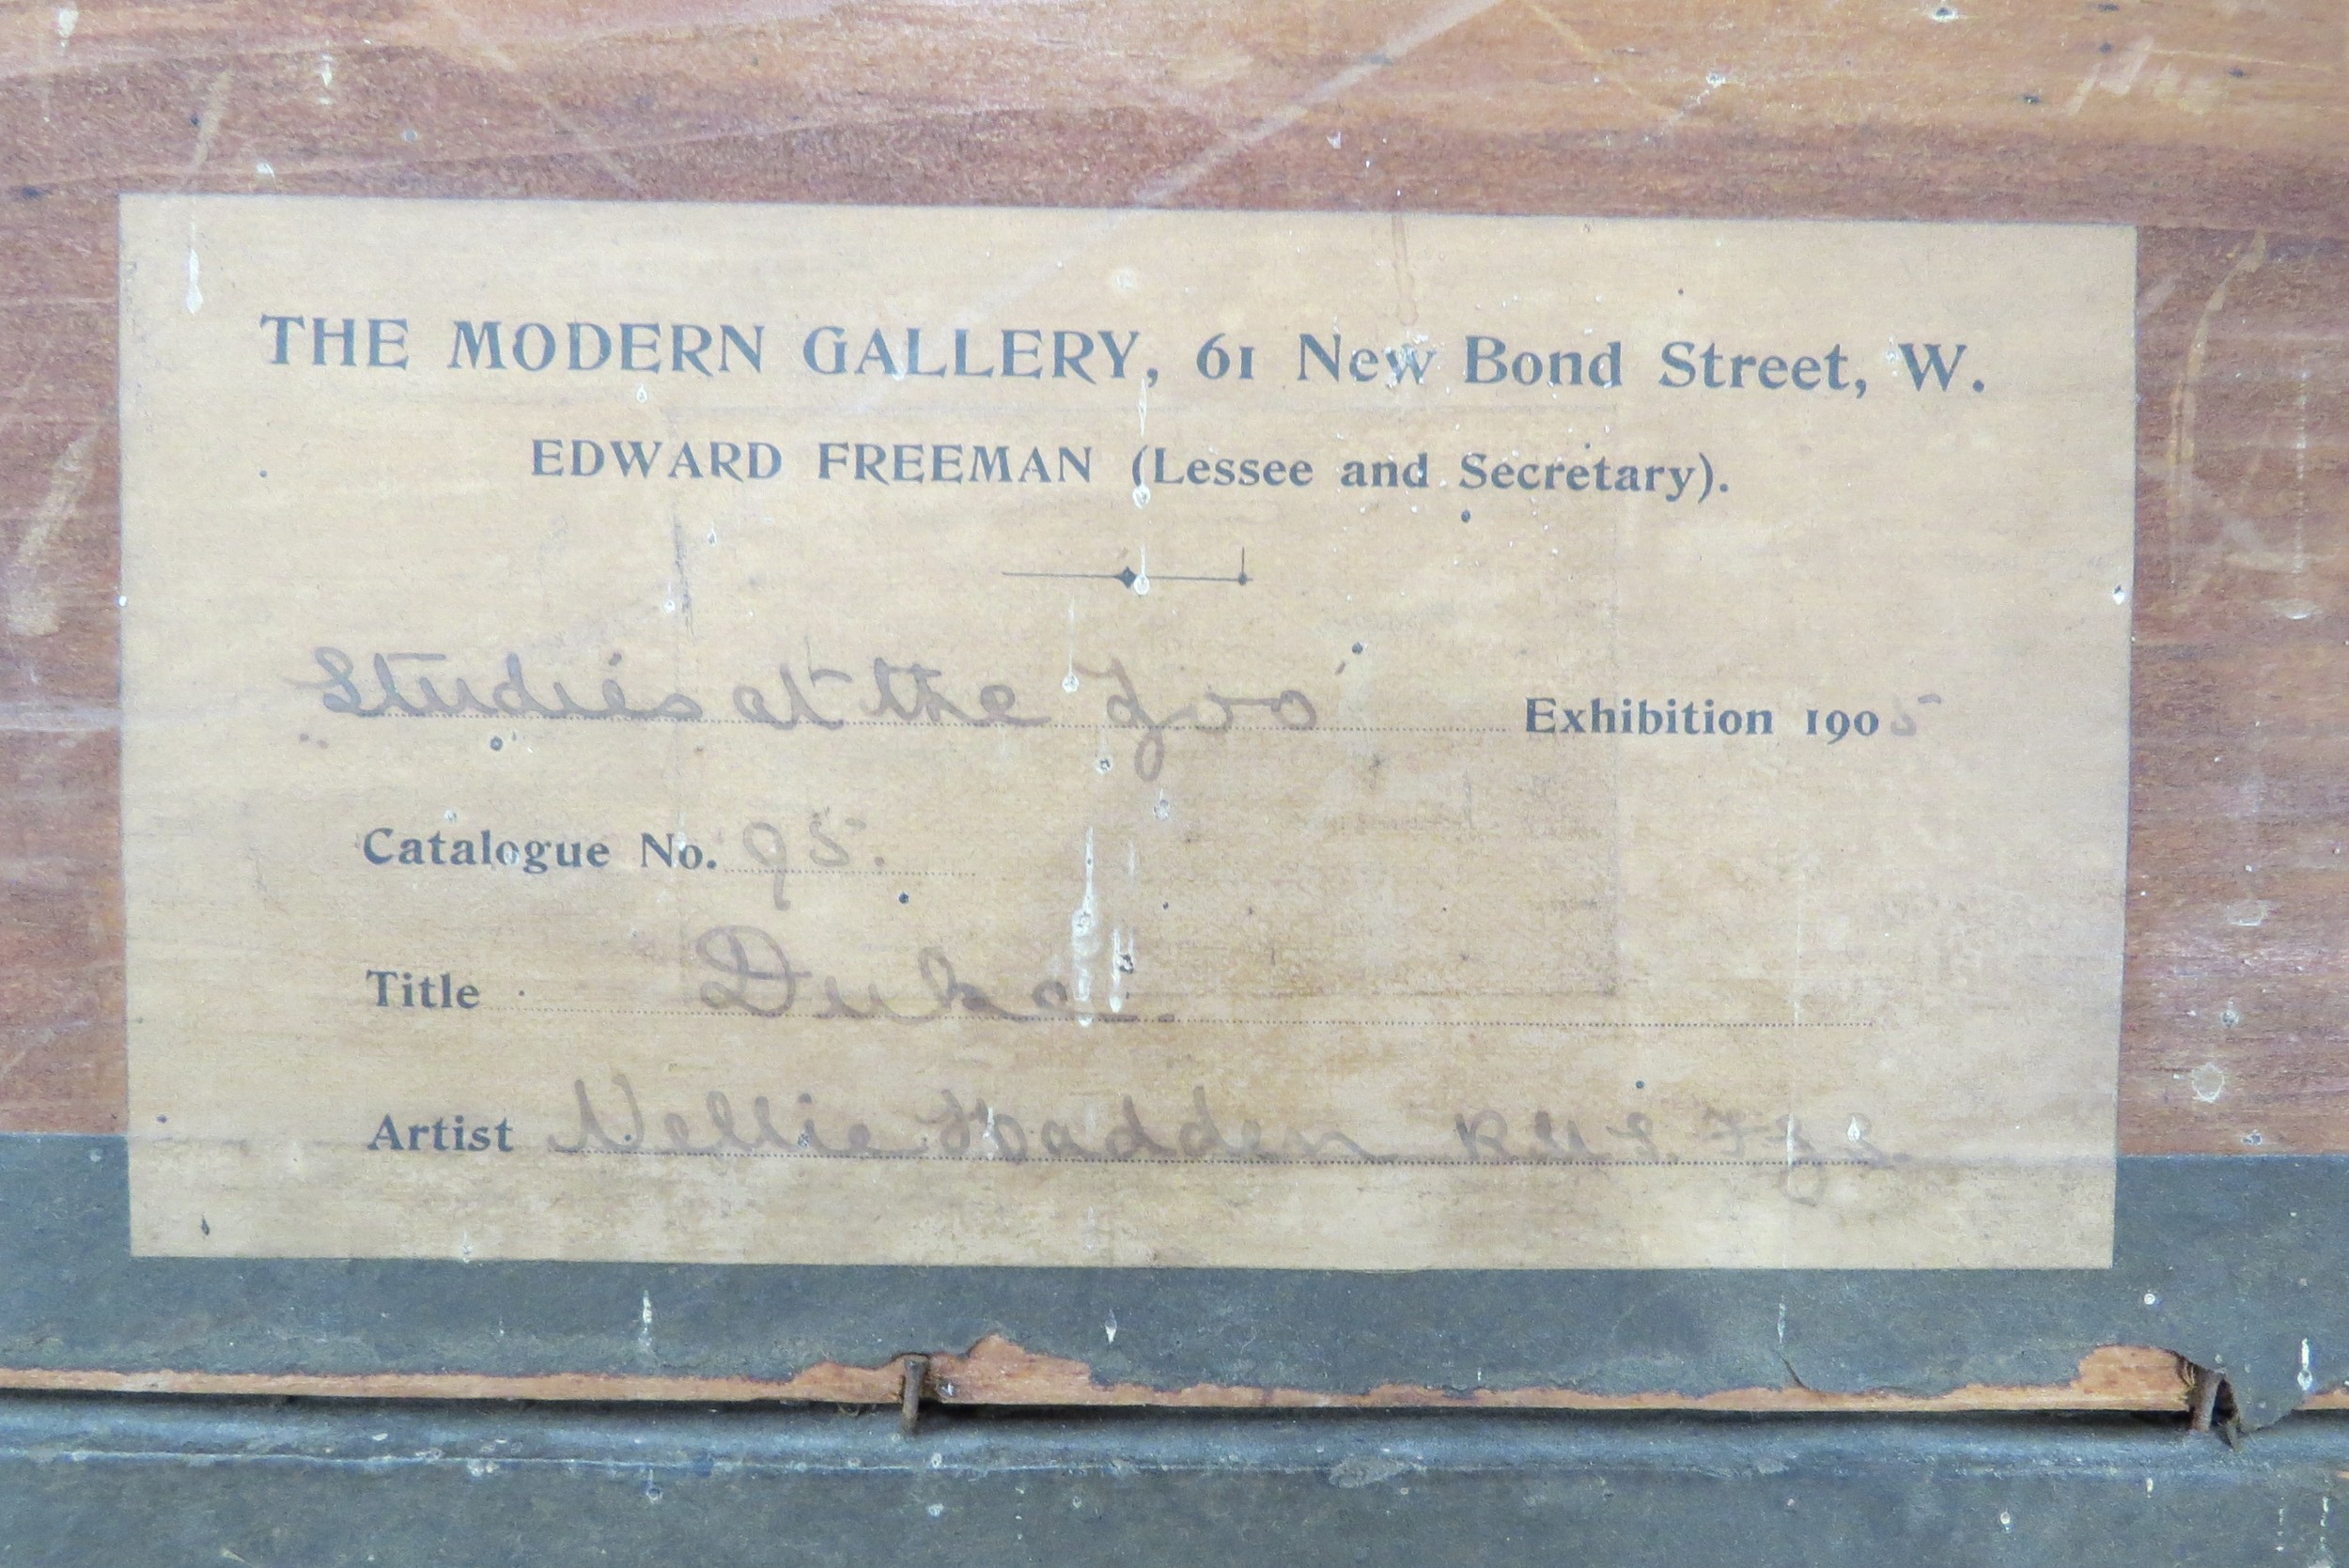 THE MODERN GALLERY, 61 New Bond Street, W.
EDWARD FREEMAN (Lessee and Secretary).
"Studies at the Zoo" Exhibition 1905
Catalogue No. 95.
Title
Artist Nellie Hadden R.M.S. F.Z.S.